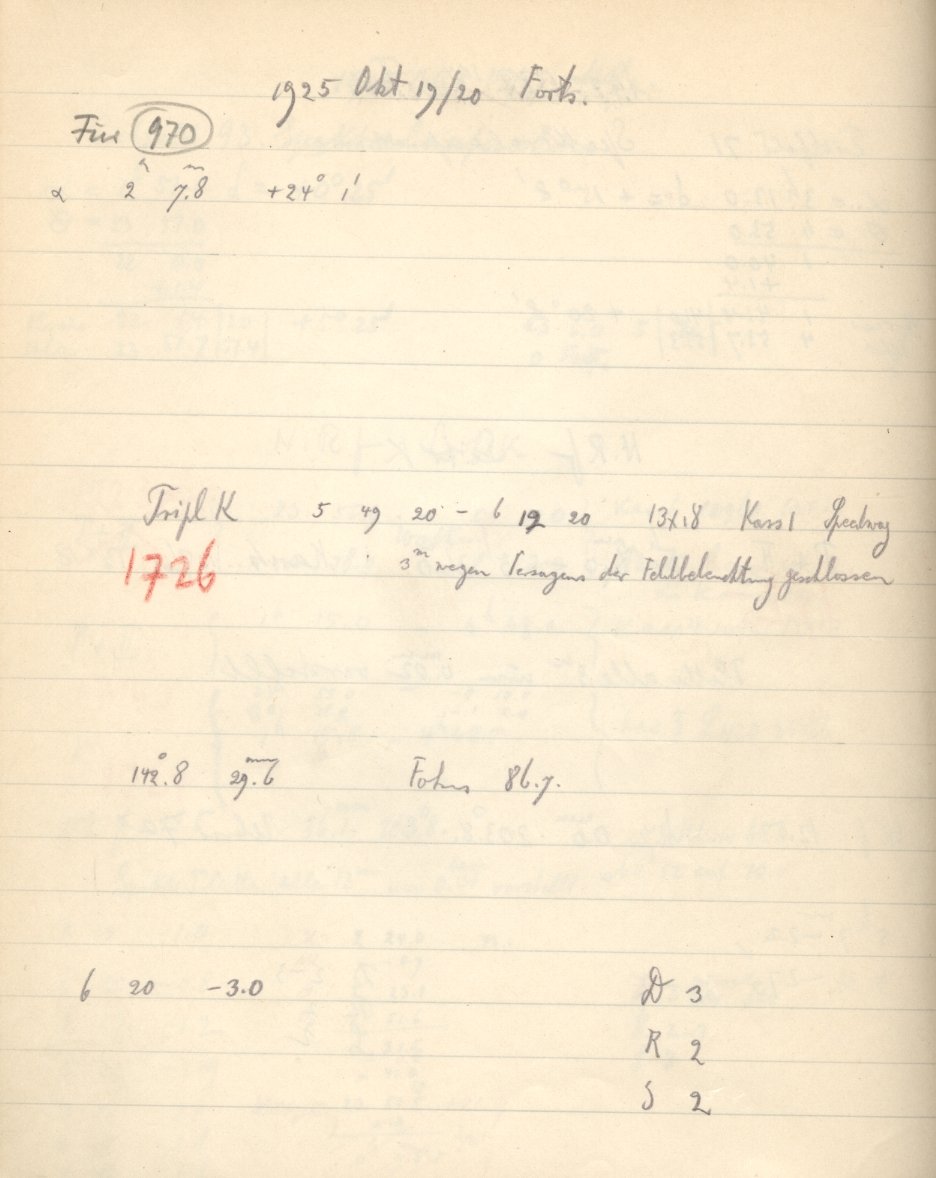 1925 Okt 19/20 Forts.
Für 970
α 2ʰ 7.8ᵐ +24° 1'
Tripl K 5 49 20 - 6 19 20 13x18 Kass 1 Speedway
1726
3ᵐ wegen Versagens der Feldbeleuchtung geschlossen
142.8° 29.6ᵐᵐ Fokus 86.7.
6 20 -3.0 D 3
R 2
S 2